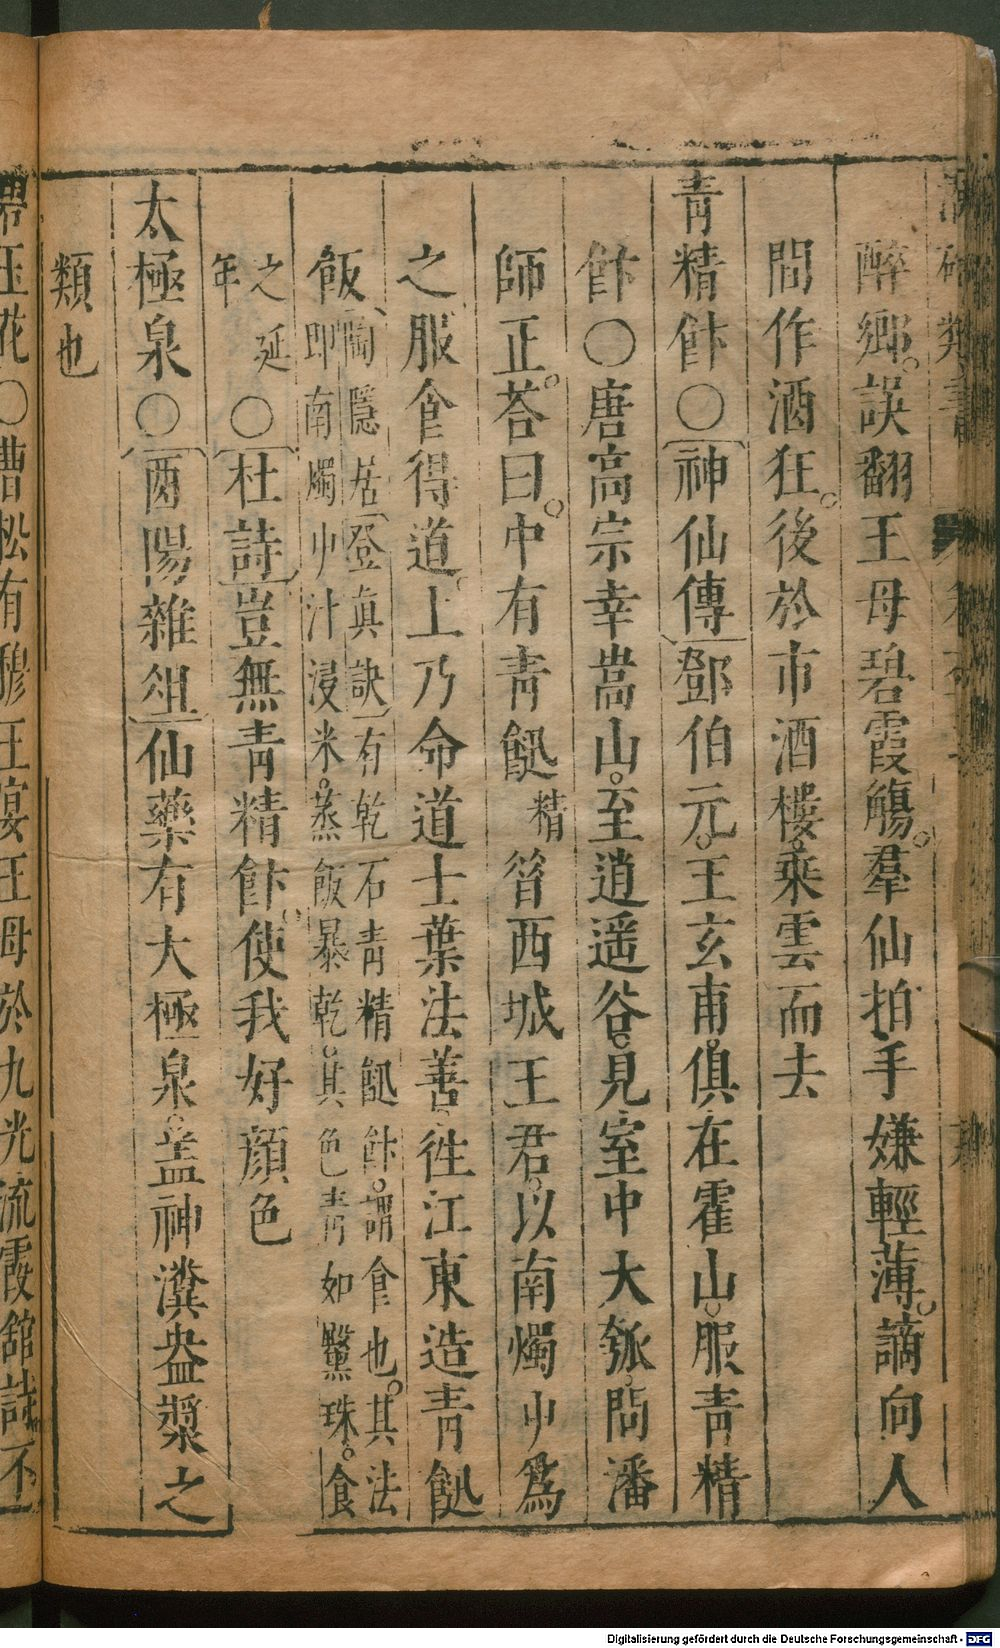 醉鄉誤翻王母碧霞觴羣仙拍手嫌輕薄謫向人
間作酒狂後於市酒樓乘雲而去
青精飰〇神仙傳鄧伯元王玄甫俱在霍山服青精
飰〇唐高宗幸嵩山至逍遥谷見室中大瓠問潘
師正荅曰中有青䭀精昝西城王君以南燭屮爲
之服食得道上乃命道士葉法善徃江東造青䭀
飯陶隱居登真訣有乾石青精䭀飰謂食也其法
即南燭屮汁浸米蒸飯暴乾其色青如黳珠食
之延
年〇杜詩豈無青精飰使我好顔色
太極泉〇酉陽雜俎仙藥有大極泉盖神瀵盎漿之
類也
界玉花〇曹松有穆王宴王母於九光流霞舘詩不
Digitalisierung gefördert durch die Deutsche Forschungsgemeinschaft - DFG